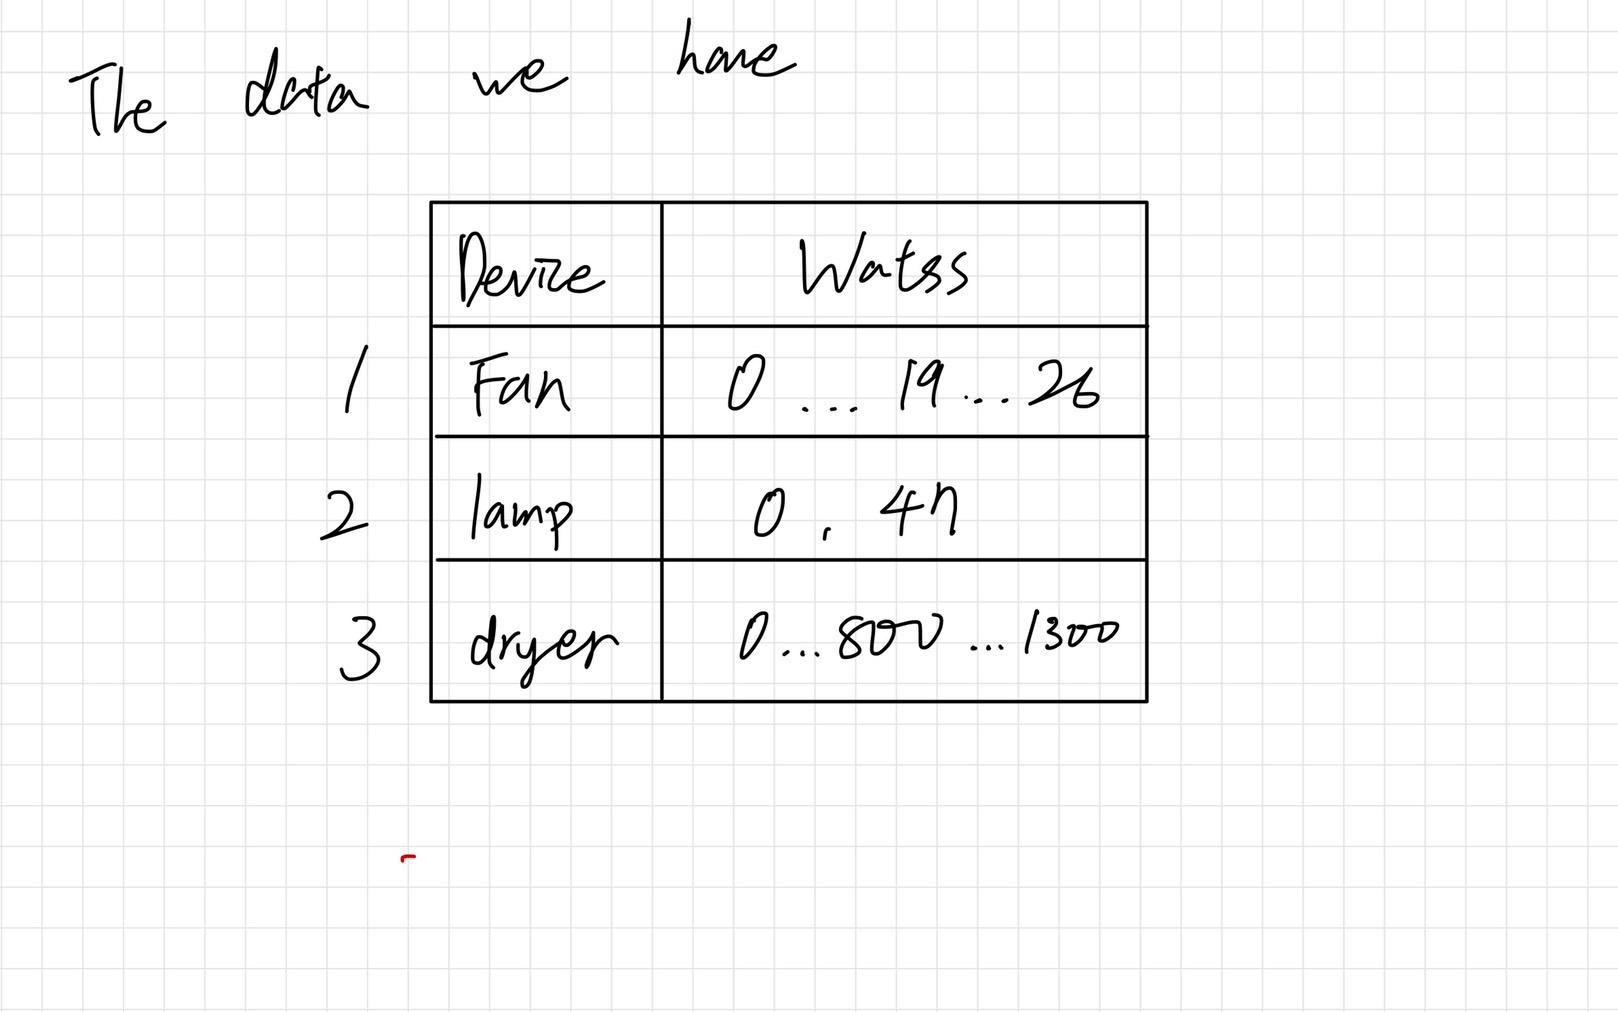 The data we have
Device Watss
1 Fan 0 ... 19 ... 26
2 lamp 0 . 47
3 dryer 0 ... 800 ... 1300